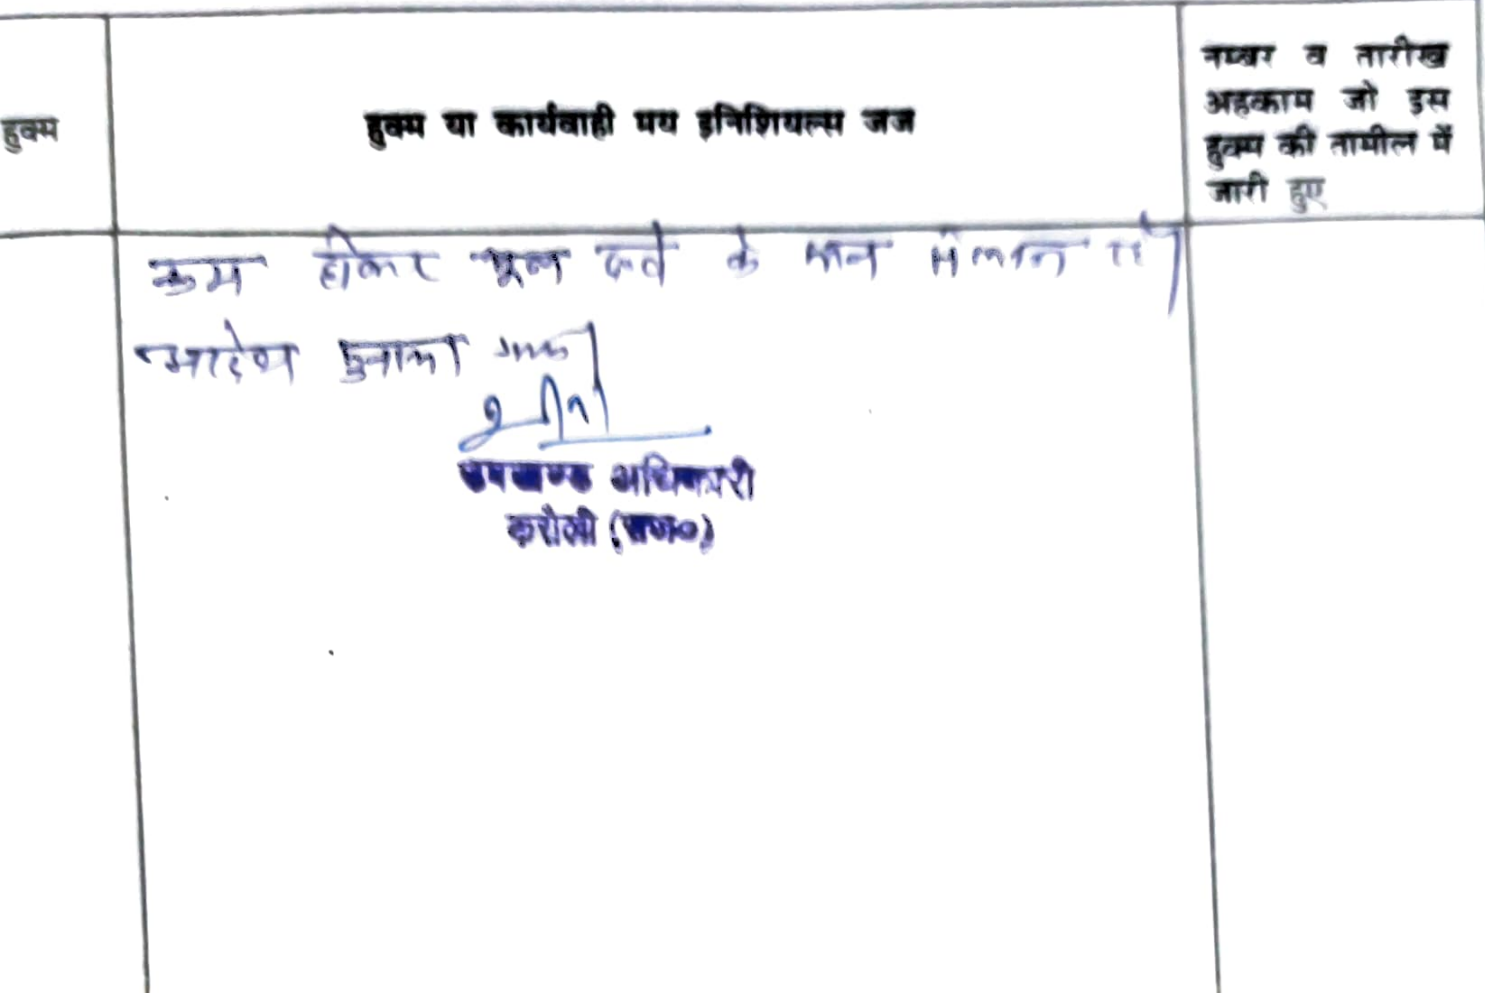 हुक्म
हुक्म या कार्यवाही मय इनिशियल्स जज
नम्बर व तारीख
अहकाम जो इस
हुक्म की तामील में
जारी हुए
कम होकर मूल दावे के साथ संलग्न रहे।
आदेश सुनाया गया।
उपखण्ड अधिकारी
करौली (राज०)